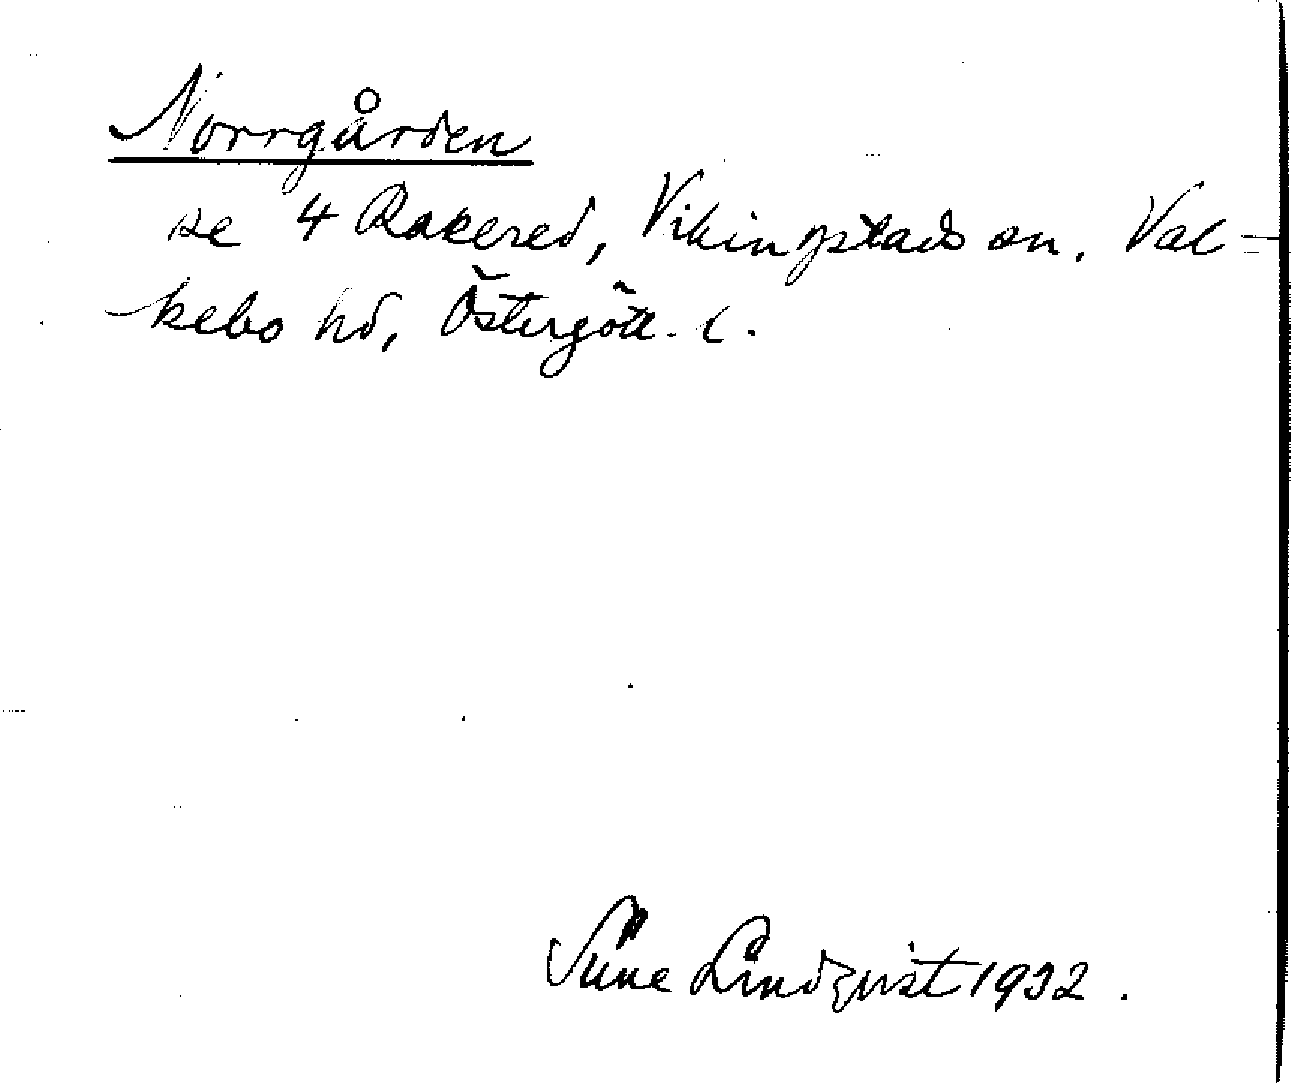 Norrgården
se 4 Rakered, Vikingstads sn. Val=
kebo hd, Östergötl. l.
Sune Lindqvist 1932.